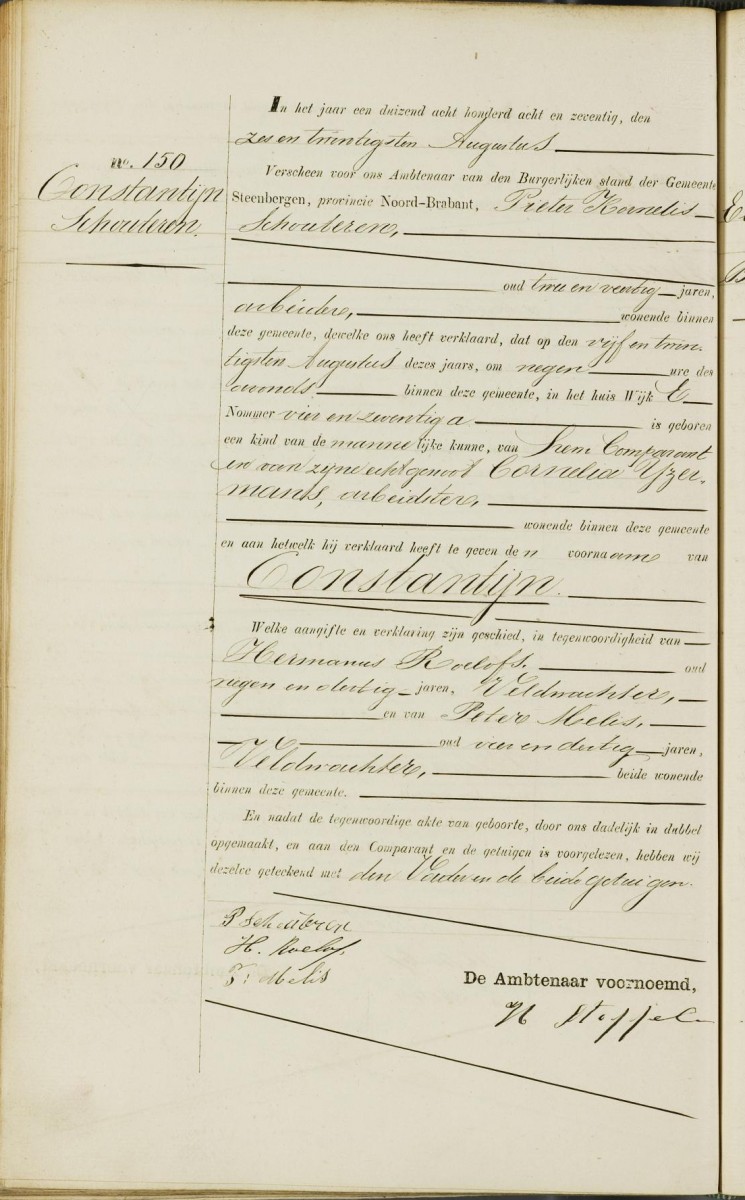 In het jaar een duizend acht honderd acht en zeventig, den
zes en twintigsten Augustus
no. 150
Constantijn
Schouteren.
Verscheen voor ons Ambtenaar van den Burgerlijken stand der Gemeente
Steenbergen, provincie Noord-Brabant, Pieter Kornelis
Schouteren,
oud twee en veertig jaren,
arbeider, wonende binnen
deze gemeente, dewelke ons heeft verklaard, dat op den vijf en twin-
tigsten Augustus dezes jaars, om negen ure des
avonds binnen deze gemeente, in het huis Wijk E
Nommer vier en zeventig a is geboren
een kind van de mannelijke kunne, van hem Comparant
en van zijne echtgenoot Cornelia Yzer-
mans, arbeidster,
wonende binnen deze gemeente
en aan hetwelk hij verklaard heeft te geven den voornaam van
Constantijn.
Welke aangifte en verklaring zijn geschied, in tegenwoordigheid van
Hermanus Roelofs. oud
negen en dertig jaren, Veldwachter,
en van Peter Melis,
oud vier en dertig jaren,
Veldwachter, beide wonende
binnen deze gemeente.
En nadat de tegenwoordige akte van geboorte, door ons dadelijk in dubbel
opgemaakt, en aan den Comparant en de getuigen is voorgelezen, hebben wij
dezelve geteekend met den Vader en de beide getuigen.
P Schouteren
H. Roelofs
P. Melis
De Ambtenaar voornoemd,